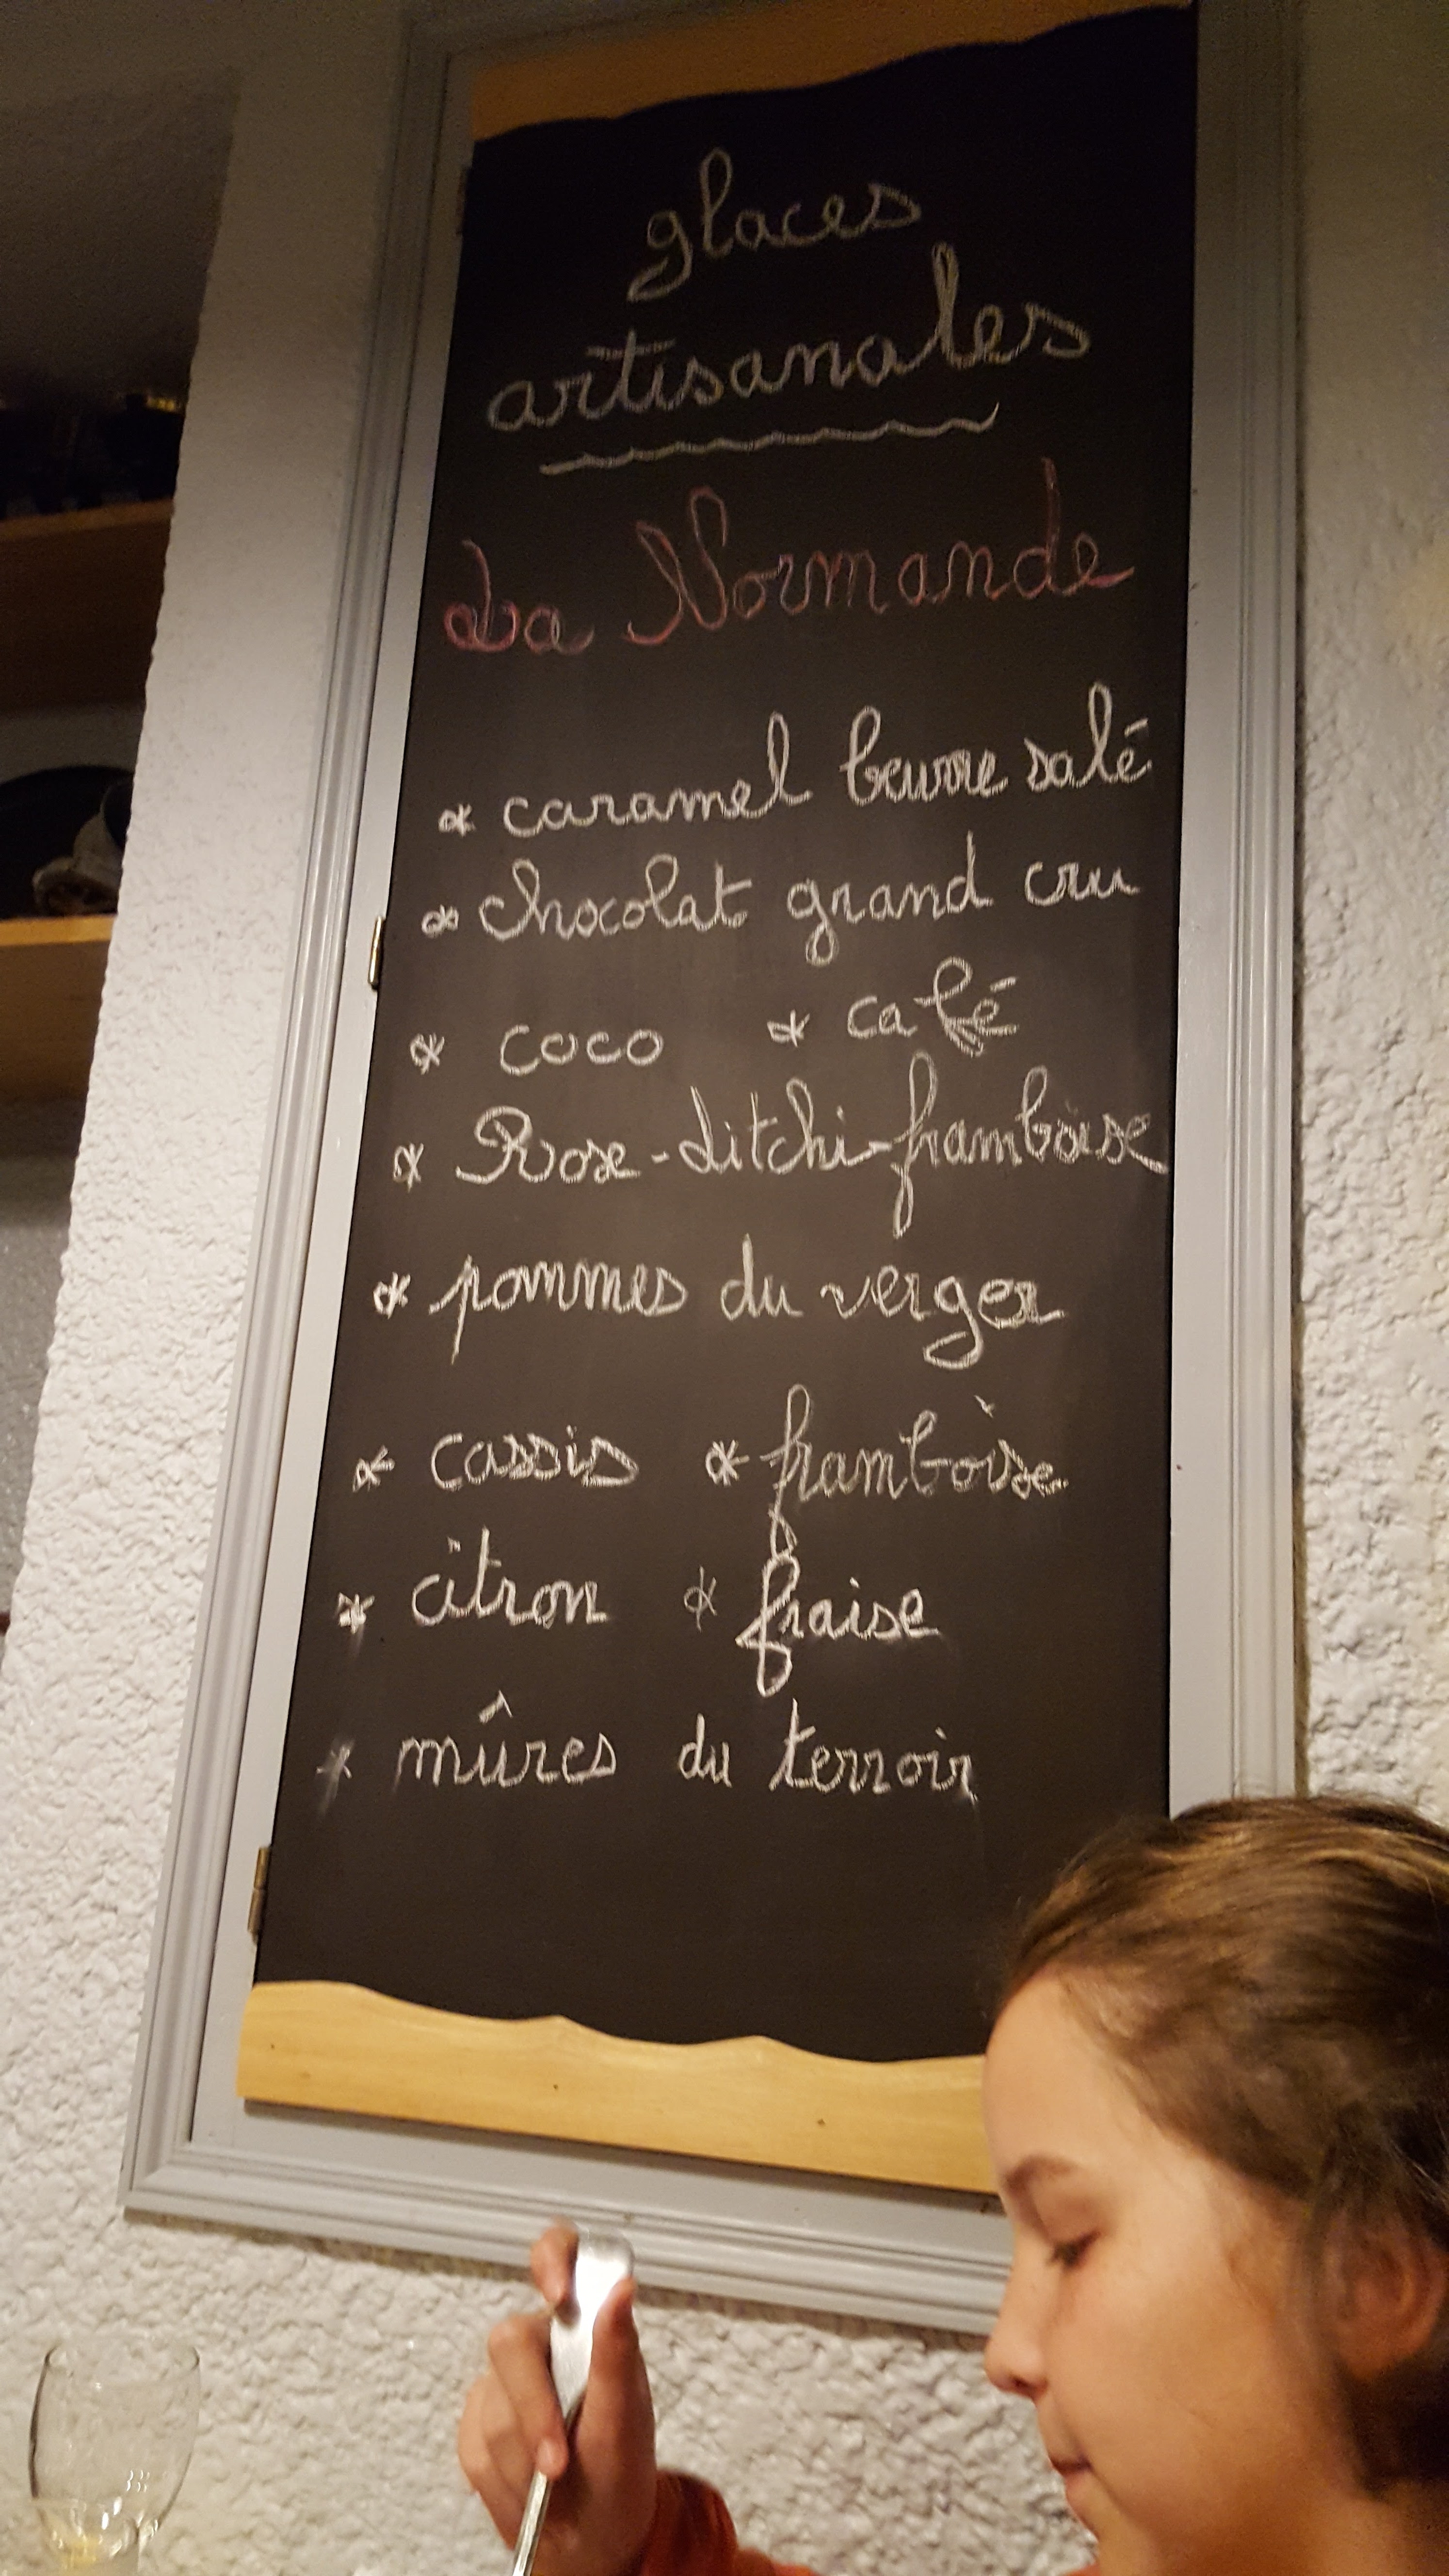 glaces
artisanales
La Normande
* caramel beurre salé
* chocolat grand cru
* coco * café
* Rose-Litchi-framboise
* pommes du verger
* cassis * framboise
* citron * fraise
* mûres du terroir